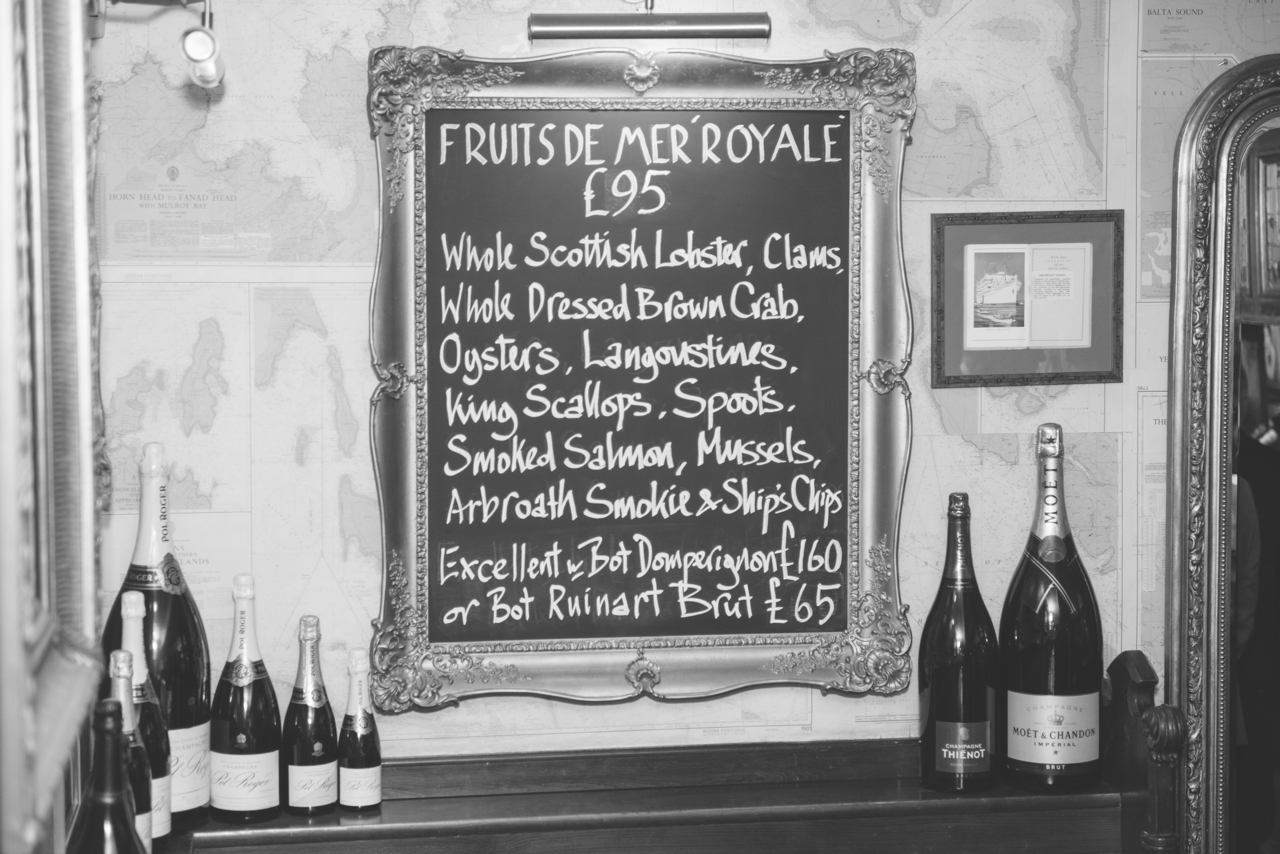 FRUITS DE MER 'ROYALE'
£95
Whole Scottish Lobster, Clams,
Whole Dressed Brown Crab,
Oysters, Langoustines,
King Scallops, Spoots,
Smoked Salmon, Mussels,
Arbroath Smokie & Ship's Chips
Excellent w Bot Domperignon £160
or Bot Ruinart Brut £65
BALTA SOUND
HORN HEAD TO FANAD HEAD
WITH MULROY BAY
POL ROGER
POL ROGER
Pol Roger
Pol Roger
Pol Roger
MOËT
CHAMPAGNE
MOËT & CHANDON
IMPÉRIAL
BRUT
CHAMPAGNE
THIÉNOT